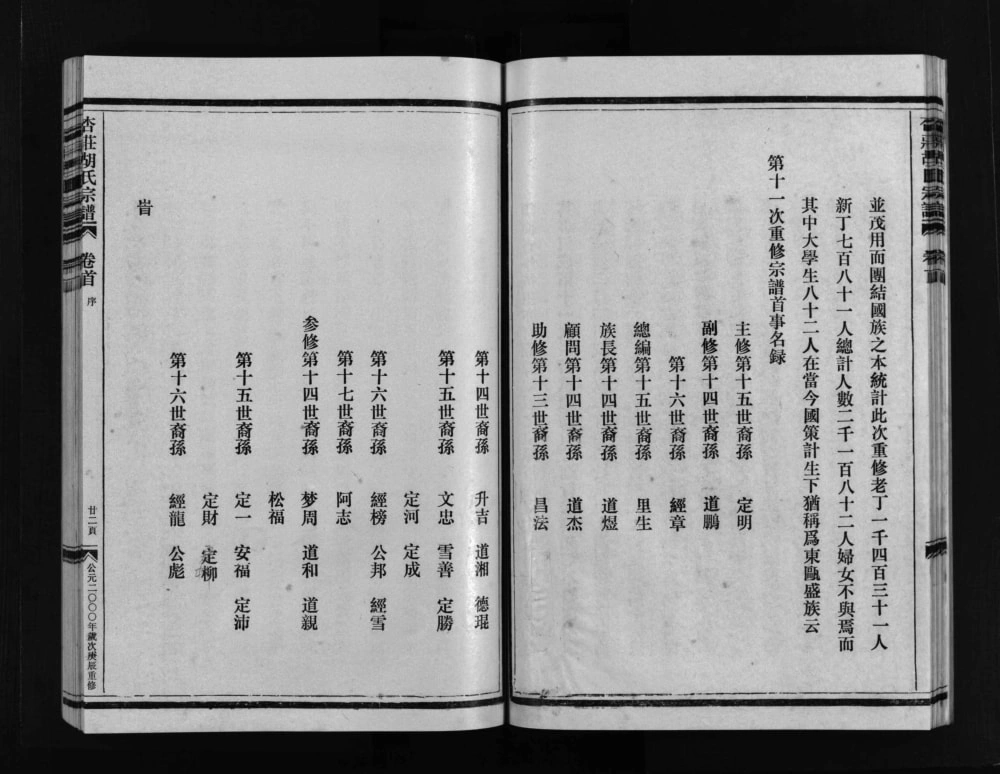 並茂用而團結國族之本統計此次重修老丁一千四百三十一人
新丁七百八十一人總計人數二千一百八十二人婦女不與焉而
其中大學生八十二人在當今國策計生下猶稱爲東甌盛族云
第十一次重修宗譜首事名録
主修第十五世裔孫 定明
副修第十四世裔孫 道鵬
第十六世裔孫 經章
總編第十五世裔孫 里生
族長第十四世裔孫 道煜
顧問第十四世裔孫 道杰
助修第十三世裔孫 昌法
第十四世裔孫 升吉 道湘 德琨
第十五世裔孫 文忠 雪善 定勝
定河 定成
第十六世裔孫 經榜 公邦 經雪
第十七世裔孫 阿志
參修第十四世裔孫 梦周 道和 道親
松福
第十五世裔孫 定一 安福 定沛
定財 定柳
第十六世裔孫 經龍 公彪
旹
杏莊胡氏宗譜 卷首 序 廿二頁 公元二〇〇〇年歲次庚辰重修